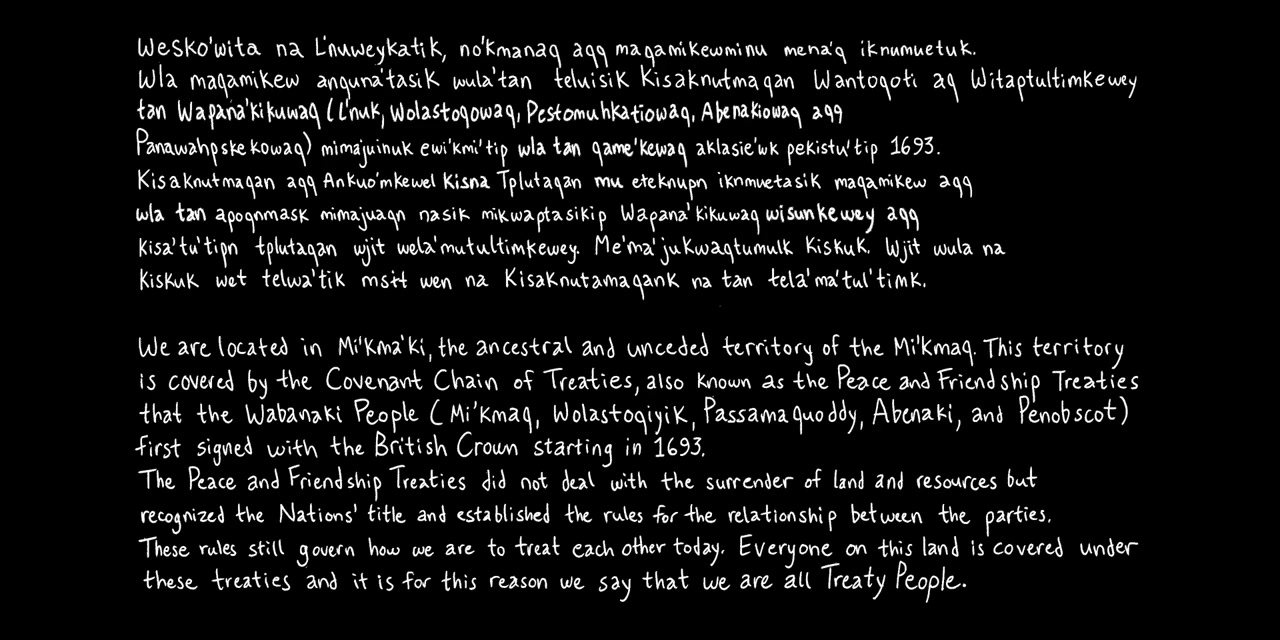 Wesko'wita na L'nuweykatik, no'kmanaq aqq maqamikewminu mena'q iknumuetuk.
Wla maqamikew anquna'tasik wula'tan teluisik Kisaknutmaqan Wantoqoti aq Witaptultimkewey
tan Wapana'kikuwaq (L'nuk, Wolastoqowaq, Pestomuhkatiowaq, Abenakiowaq aqq
Panawahpskekowaq) mimajuinuk ewi'kmi'tip wla tan qame'kewaq aklasie'wk pekistu'tip 1693.
Kisaknutmaqan aqq Ankuo'mkewel Kisna Tplutaqan mu eteknupn iknmuetasik maqamikew aqq
wla tan apoqnmask mimajuaqn nasik mikwaptasikip Wapana'kikuwaq wisunkewey aqq
kisa'tu'tipn tplutaqan wjit wela'mutultimkewey. Me'ma'jukwaqtumulk Kiskuk. Wjit wula na
kiskuk wet telwa'tik msɨt wen na Kisaknutamaqank na tan tela'ma'tul'timk.
We are located in Mi'kma'ki, the ancestral and unceded territory of the Mi'kmaq. This territory
is covered by the Covenant Chain of Treaties, also known as the Peace and Friendship Treaties
that the Wabanaki People (Mi'kmaq, Wolastoqiyik, Passamaquoddy, Abenaki, and Penobscot)
first signed with the British Crown starting in 1693.
The Peace and Friendship Treaties did not deal with the surrender of land and resources but
recognized the Nations' title and established the rules for the relationship between the parties.
These rules still govern how we are to treat each other today. Everyone on this land is covered under
these treaties and it is for this reason we say that we are all Treaty People.